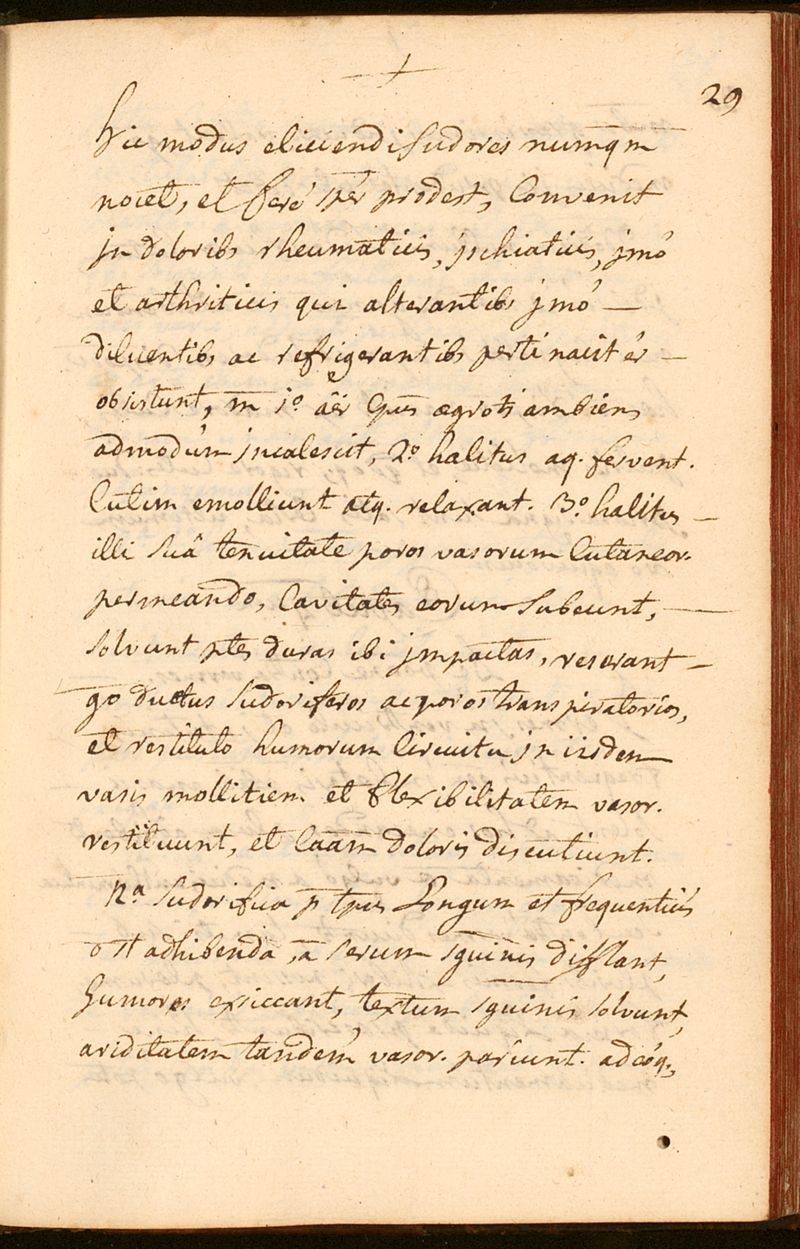 29
hic modus eliciendi sudores numqm
nocet, et feré spér prodest, Convenit
jn doloribs rheumaticis, jschiaticis, jmó
et arthriticis qui alterantibs jmó —
diluentibs ac refrigerantibs pertinacitér —
obsistunt, m 1º aër Qui ægroti ambiens
admodúm jncalescit, 2º halitus aq. fervent.
Cutim emolliunt atq. relaxant. 3º halitus —
illi suâ tenuitate poros vasorum Cutaneor.
permeando, Cavitates eorum subeunt, —
solvunt ptes duras ibi jmpactas, reserant —
go ductus sudoriferos ac poros transpiratorios,
et restituto humorum Circuitu jn iisdem
vasis mollitiem et flexibilitatem vasor.
restituunt, et Caam doloris discutiunt.
Na Sudorifica p tpus Longum et frequentiús
o st adhibenda, a serum sguinis difflant,
humores exsiccant, textum sguinis solvunt,
ariditatem tandem vasor. pariunt. adcóq.,